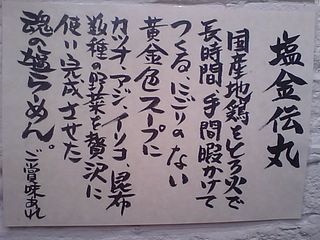 塩金伝丸
国産地鶏をとろ火で
長時間、手間暇かけて
つくる、にごりのない
黄金色スープに
カツオ、アジ、イリコ、昆布
数種の野菜を贅沢に
使い完成させた
魂の塩らーめん。
ご賞味あれ